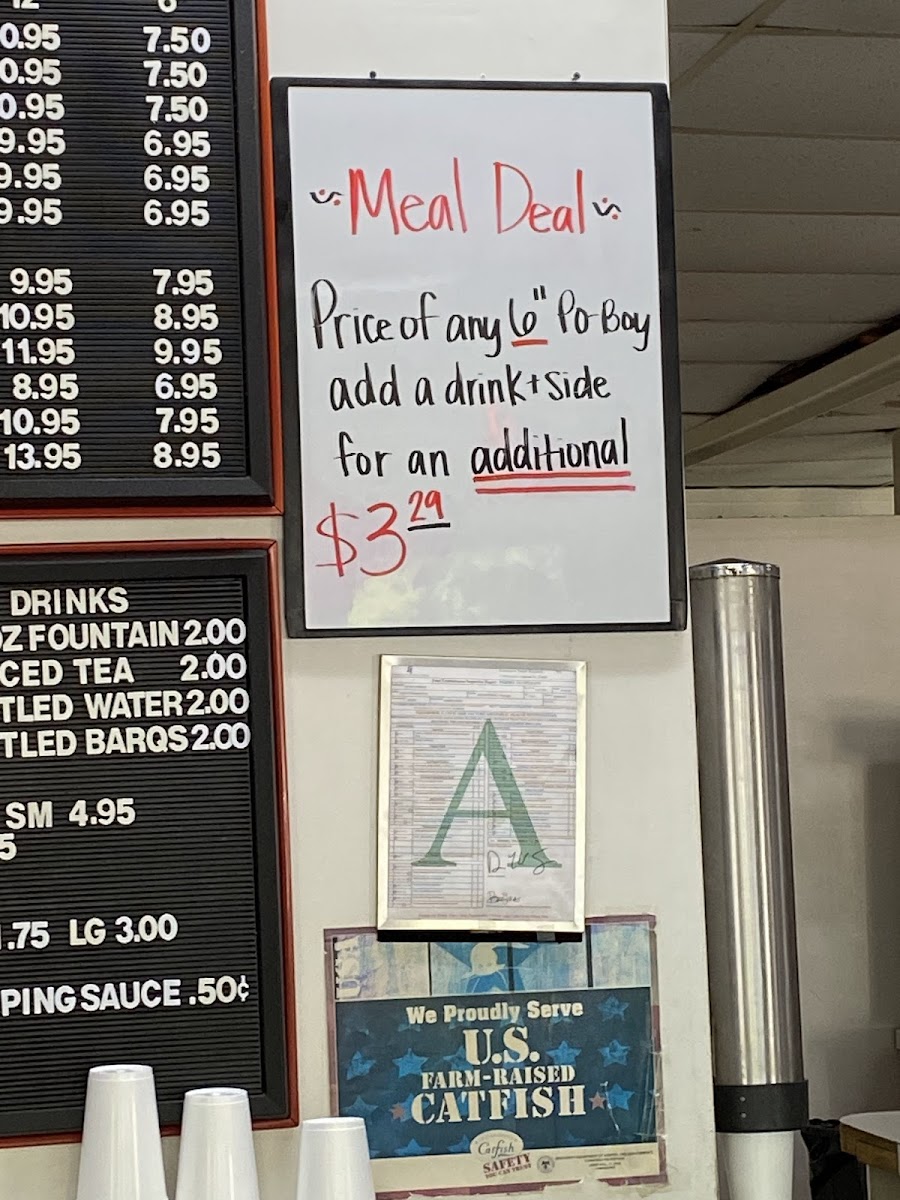 12 6
0.95 7.50
0.95 7.50
0.95 7.50
9.95 6.95
9.95 6.95
9.95 6.95
9.95 7.95
10.95 8.95
11.95 9.95
8.95 6.95
10.95 7.95
13.95 8.95
Meal Deal
Price of any 6" Po-Boy
add a drink + side
for an additional
$3 29
DRINKS
OZ FOUNTAIN 2.00
CED TEA 2.00
TLED WATER 2.00
TLED BARQS 2.00
SM 4.95
5
.75 LG 3.00
PING SAUCE .50¢
A
We Proudly Serve
U.S.
FARM-RAISED
CATFISH
Catfish
SAFETY
YOU CAN TRUST